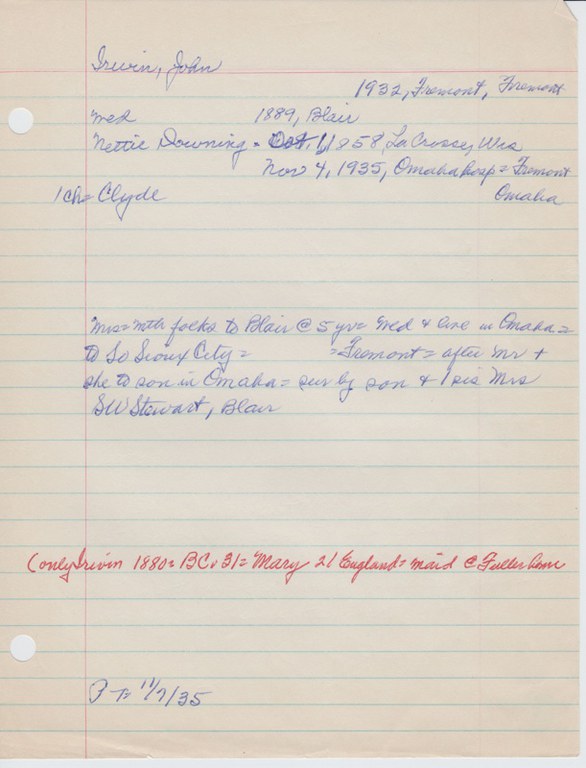 Irwin, John
1932, Fremont, Fremont
wed 1889, Blair
Nettie Downing = Oct 1, 1858, LaCrosse, Wis
Nov 4, 1935, Omaha hosp = Fremont
1 ch = Clyde Omaha
Mrs = with folks to Blair @ 5 yr = wed & live in Omaha =
to So Sioux City = = Fremont = after Mr +
she to son in Omaha = sur by son & 1 sis Mrs
SW Stewart, Blair
(only Irwin 1880 = BC, 31 = Mary 21 England = maid @ Fuller home
P T = 11/7/35